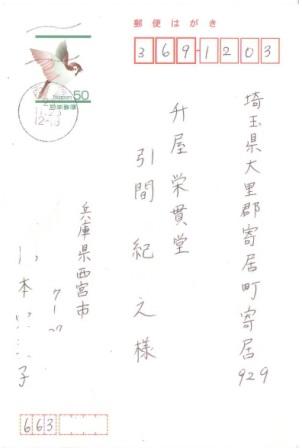 郵便はがき
369-1203
埼玉県大里郡寄居町寄居
929
升屋栄貫堂
引間紀之様
兵庫県西宮市
本
子
663
Nippon 50
日本郵便